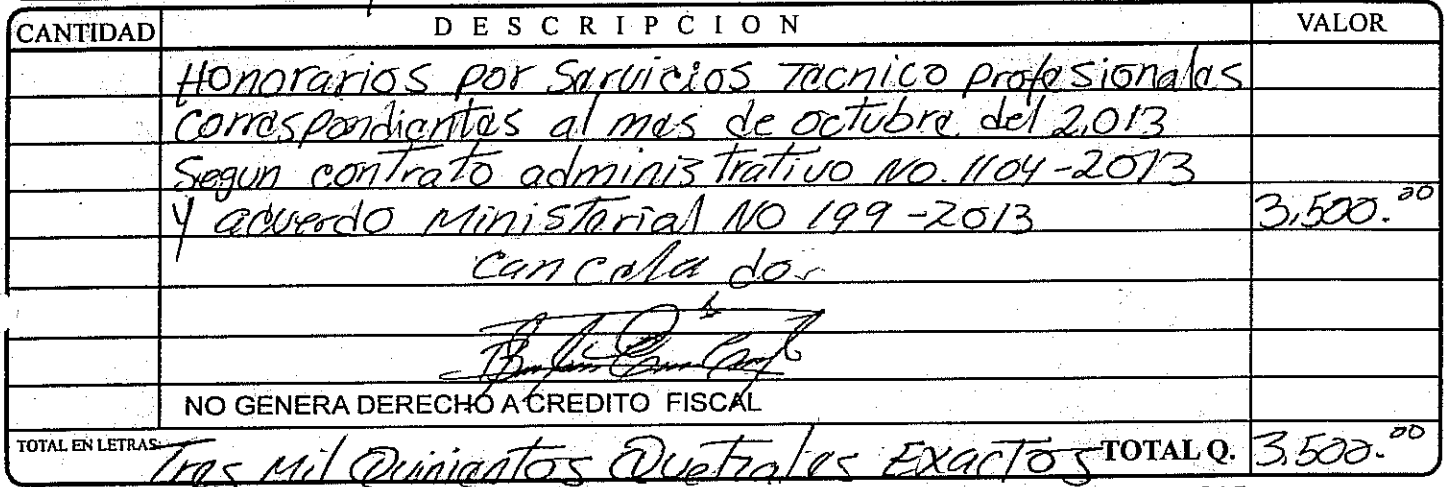 CANTIDAD DESCRIPCION VALOR
Honorarios por Servicios Tecnico profesionales
correspondientes al mes de octubre del 2,013
Segun contrato administrativo No. 1104-2013
Y acuerdo Ministerial NO 199-2013 3,500.00
Cancelado.
NO GENERA DERECHO A CREDITO FISCAL
TOTAL EN LETRAS: Tres Mil Quinientos Quetzales Exactos TOTAL Q. 3,500.00